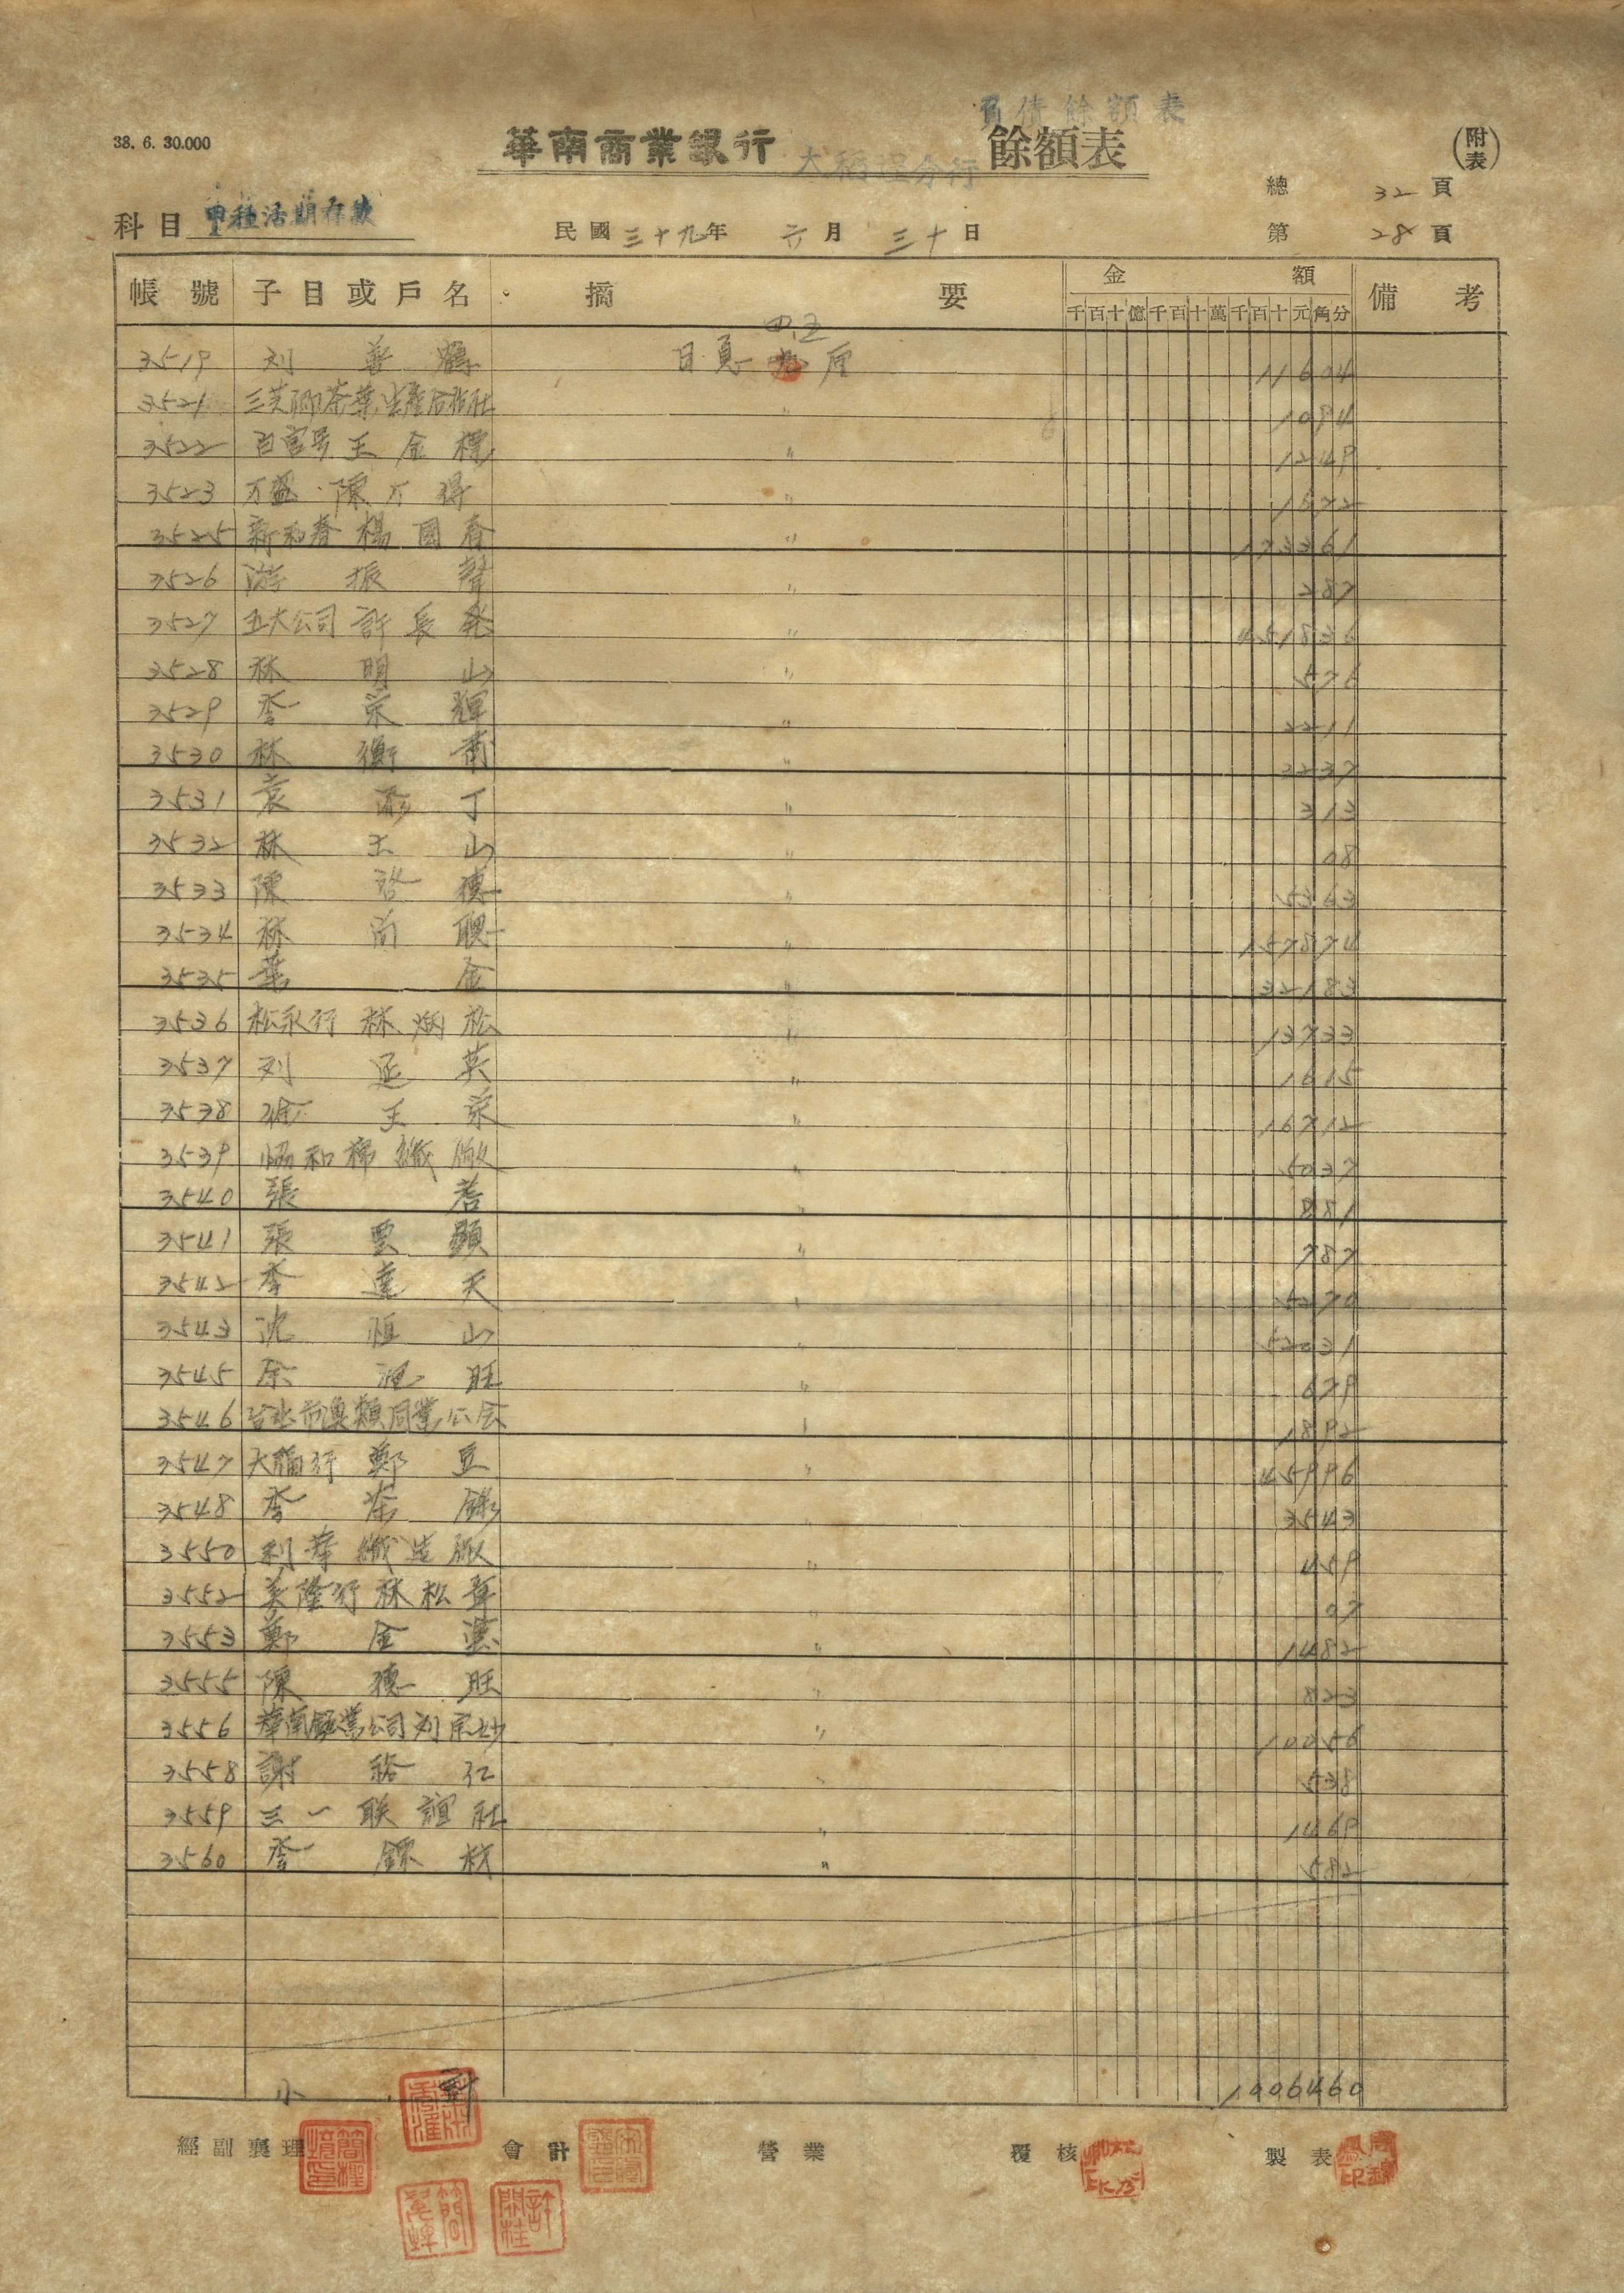 負債餘額表
38. 6. 30.000
華南商業銀行 大稻埕分行 餘額表
(附表)
總 32 頁
科目 甲種活期存款
民國 三十九 年 六 月 三十 日
第 28 頁
帳號 子目或戶名 摘要 金額 備考
千百十億千百十萬千百十元角分
四.五
3519 刘 鶴 日息 九 厘 11604
3521 三芝鄉茶葉生產合作社 〃 1094
3522 百宮号 王金標 〃 1249
3523 万益 陳万得 〃 1572
3525 新和春 楊國春 〃 173361
3526 游振聲 〃 287
3527 五大公司 許長発 〃 451836
3528 林明山 〃 576
3529 李榮輝 〃 2211
3530 林衡甫 〃 3237
3531 袁 丁 〃 313
3532 林玉山 〃 08
3533 陳啓德 〃 5363
3534 林尚聰 〃 157874
3535 葉金 〃 32183
3536 松永行 林炳松 〃 13733
3537 刘延英 〃 1615
3538 徐王榮 〃 16712
3539 昭和棉織廠 〃 5037
3540 張 〃 881
3541 張 顕 〃 787
3542 李達天 〃 5270
3543 沈恒山 〃 52031
3545 余 旺 〃 679
3546 台北市魚類同業公会 〃 1892
3547 大福行 鄭豆 〃 45996
3548 李茶 〃 3543
3550 利華織造廠 〃 459
3552 美隆行 林松 〃 07
3553 鄭金 〃 1482
3555 陳德旺 〃 823
3556 華南 公司 刘宗妙 〃 10056
3558 謝裕江 〃 538
3559 三一联誼社 〃 1469
3560 李錦枝 〃 582
小計 1006460
經副襄理 會計 營業 覆核 製表